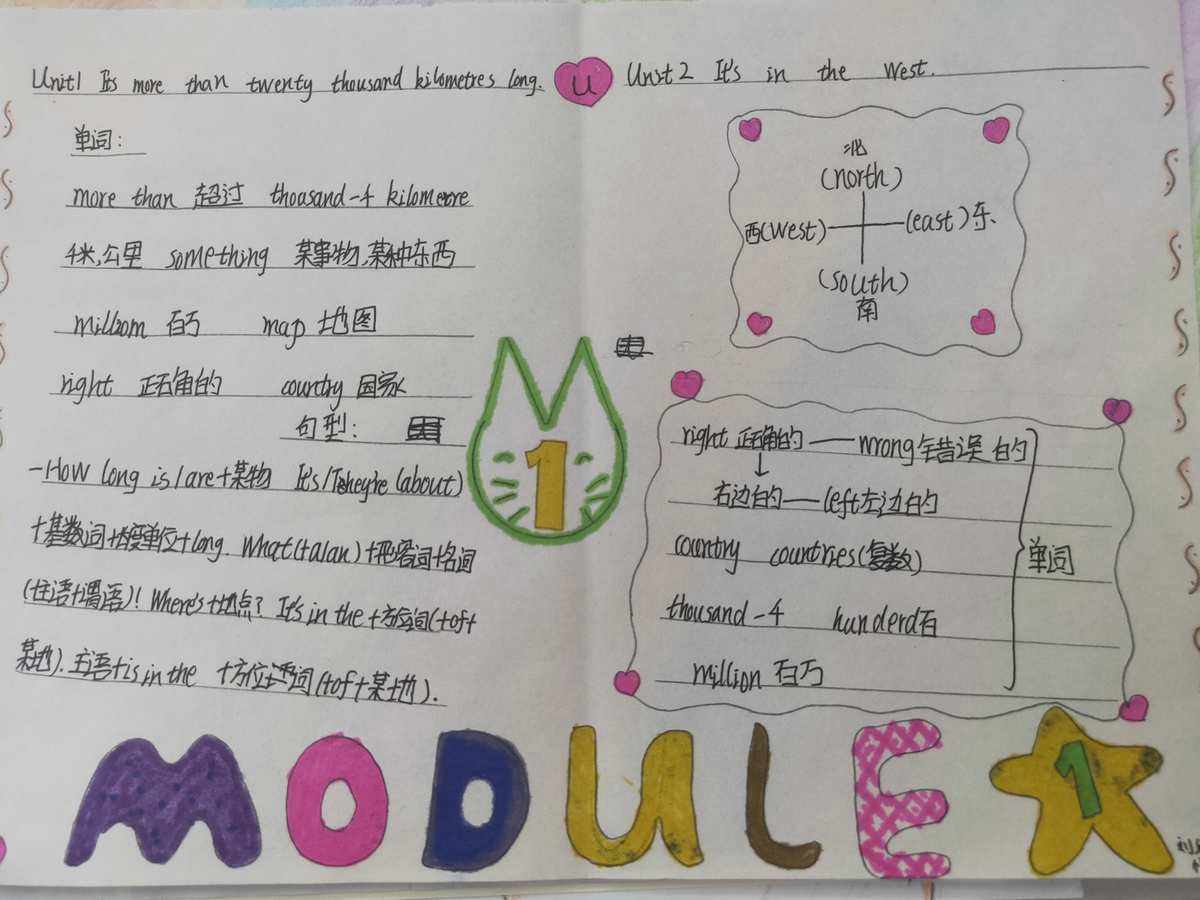 Unit1 It's more than twenty thousand kilometres long.
U
Unit 2 It's in the west.
单词:
more than 超过 thousand-千 kilometre
千米,公里 something 某事物,某种东西
million 百万 map 地图
right 正确的 country 国家
句型:
-How long is/are+某物 It's/They're (about)
+基数词+度量单位+long. What(+a/an)+形容词+名词
(主语+谓语)! Where's+地点? It's in the +方位词(+of+
某地). 主语+is in the +方位词(+of+某地).
北
(north)
西(west) (east)东
(south)
南
1
right 正确的——wrong 错误的
右边的——left左边的
country countries(复数)
单词
thousand-千 hunderd百
million 百万
MODULE 1